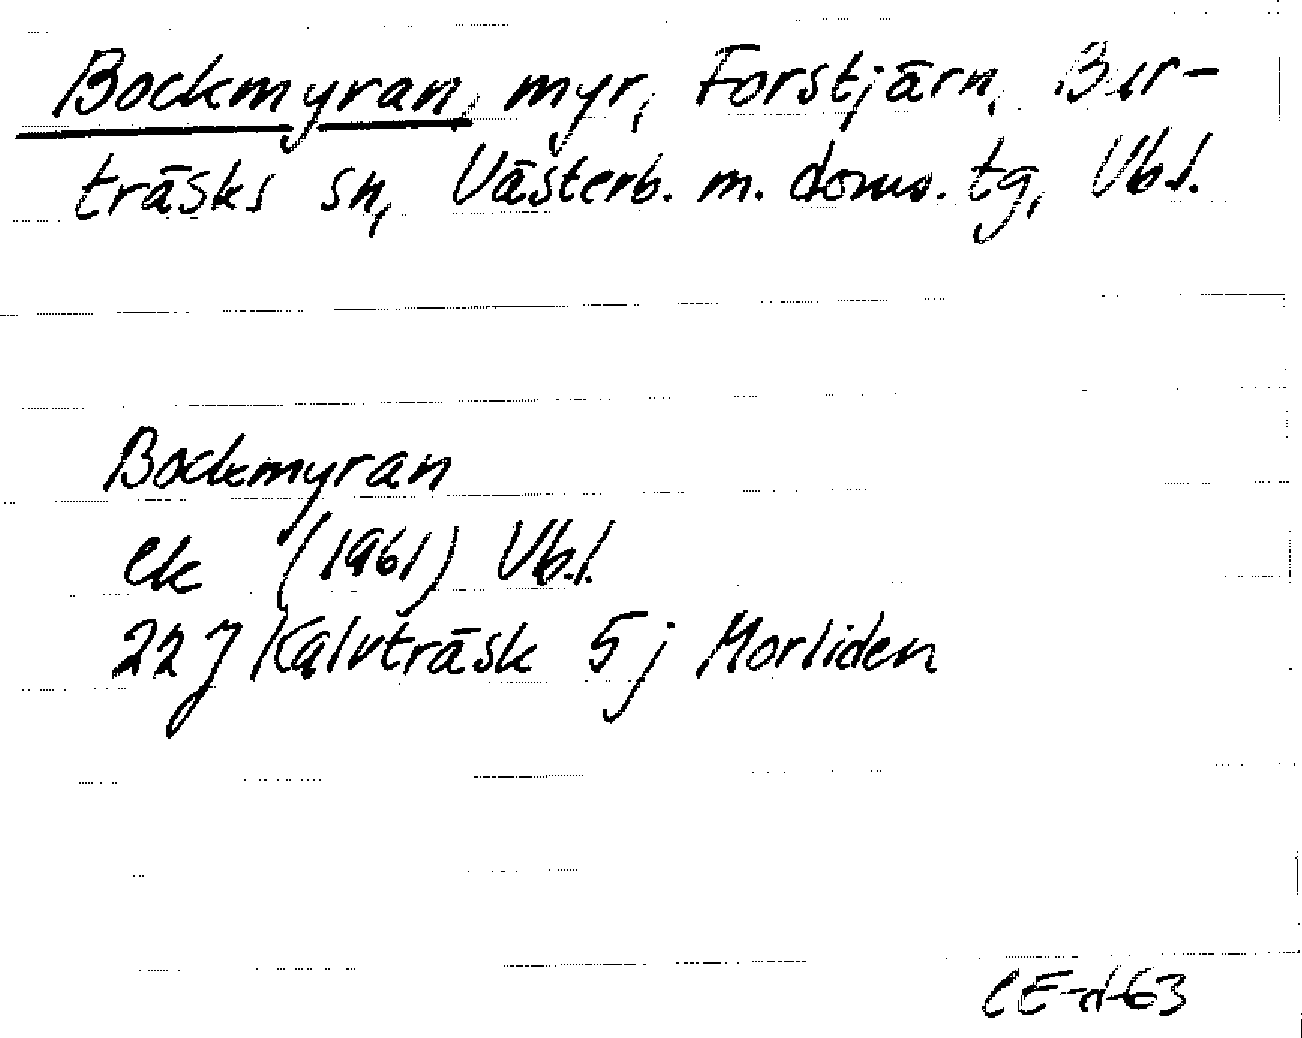 Bockmyran, myr, Forstjärn, Bur-
träsks sn, Västerb. m. doms. tg, Vb.l.
Bockmyran
ek (1961) Vb.l.
22 J Kalvträsk 5 j Morliden
CE-d-63